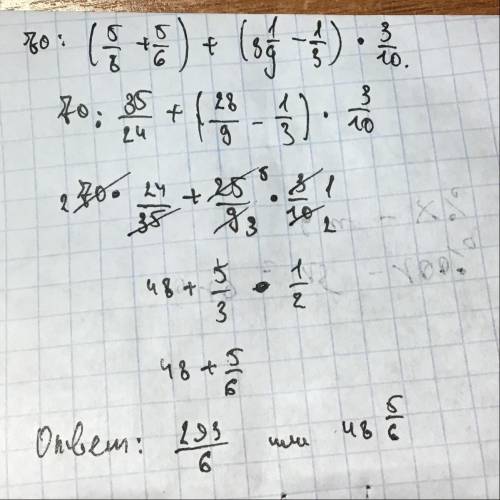 70 : (5/8 + 5/6) + (3 1/9 - 1/3) · 3/10.
70 : 35/24 + (28/9 - 1/3) · 3/10
2 70 · 24/35 + 25 5/9 3 · 3 1/10 2
48 + 5/3 · 1/2
48 + 5/6
Ответ: 293/6 или 48 5/6